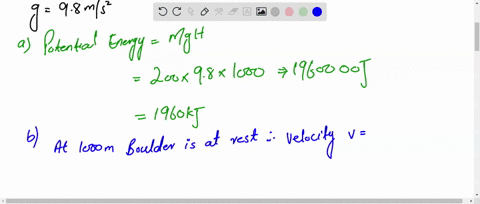 g = 9.8 m/s²
a) Potential Energy = MgH
= 200 x 9.8 x 1000 → 1960000J
= 1960kJ
b) At 1000m Boulder is at rest ∴ Velocity v =